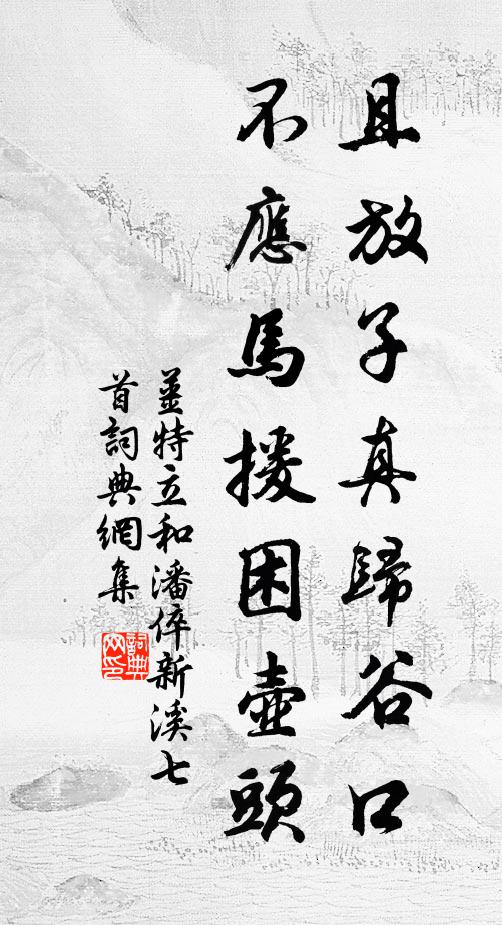 且放子真歸谷口
不應馬援困壺頭
姜特立和潘倅新溪七
首詞典網集
詞典
网印